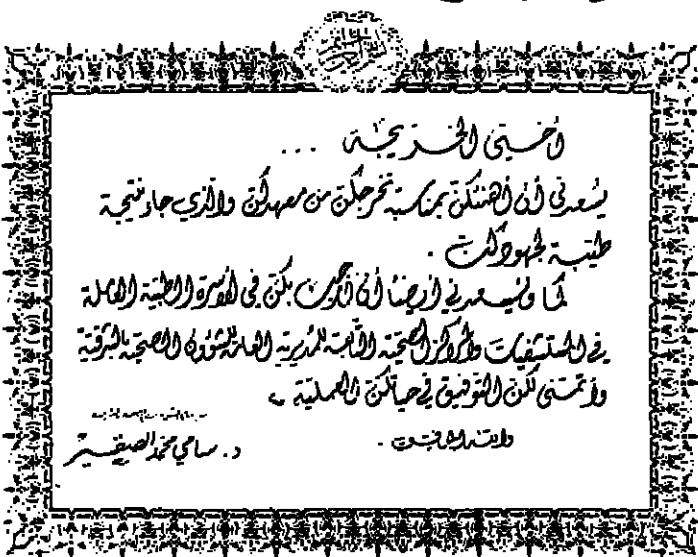 أختي الخريجة ...
يسعدني أن أهنئكن بمناسبة تخرجكن من معهدكن والذي جاء نتيجة
طيبة لجهودكن .
كما ويسعدني أيضاً أن أرحب بكن في الأسرة الطبية العاملة
في المستشفيات والمراكز الصحية التابعة للمديرية العامة للشؤون الصحية بالشرقية
وأتمنى لكن التوفيق في حياتكن العملية ،
والله الموفق .
د. سامي محمد الصقير